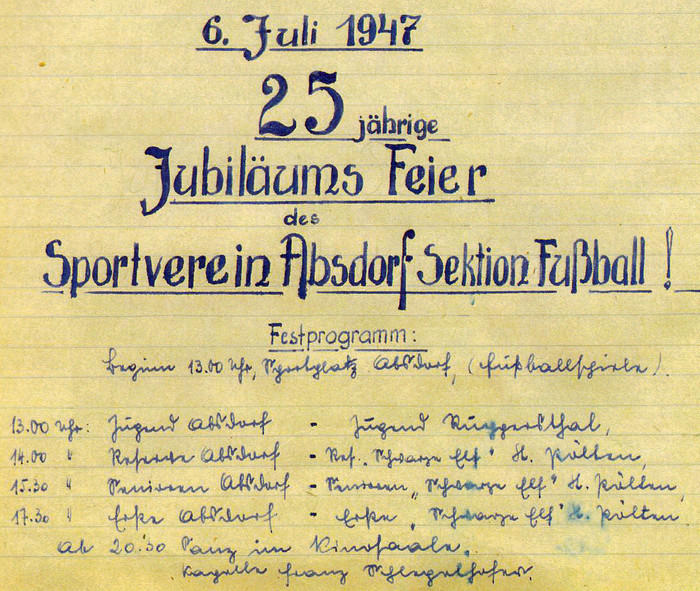 6. Juli 1947
25 jährige
Jubiläums Feier
des
Sportverein Absdorf Sektion Fußball!
Festprogramm:
Beginn 13.00 Uhr, Sportplatz Absdorf, (Fußballspiele).
13.00 Uhr: Jugend Absdorf - Jugend Ruppersthal,
14.00 " Reserve Absdorf - Res. „Schwarze Elf" St. Pölten,
15.30 " Senioren Absdorf - Senioren „Schwarze Elf" St. Pölten,
17.30 " Erste Absdorf - Erste „Schwarze Elf" St. Pölten
Ab 20.30 Tanz im Kinosaale.
Kapelle Franz Schlegelhofer.